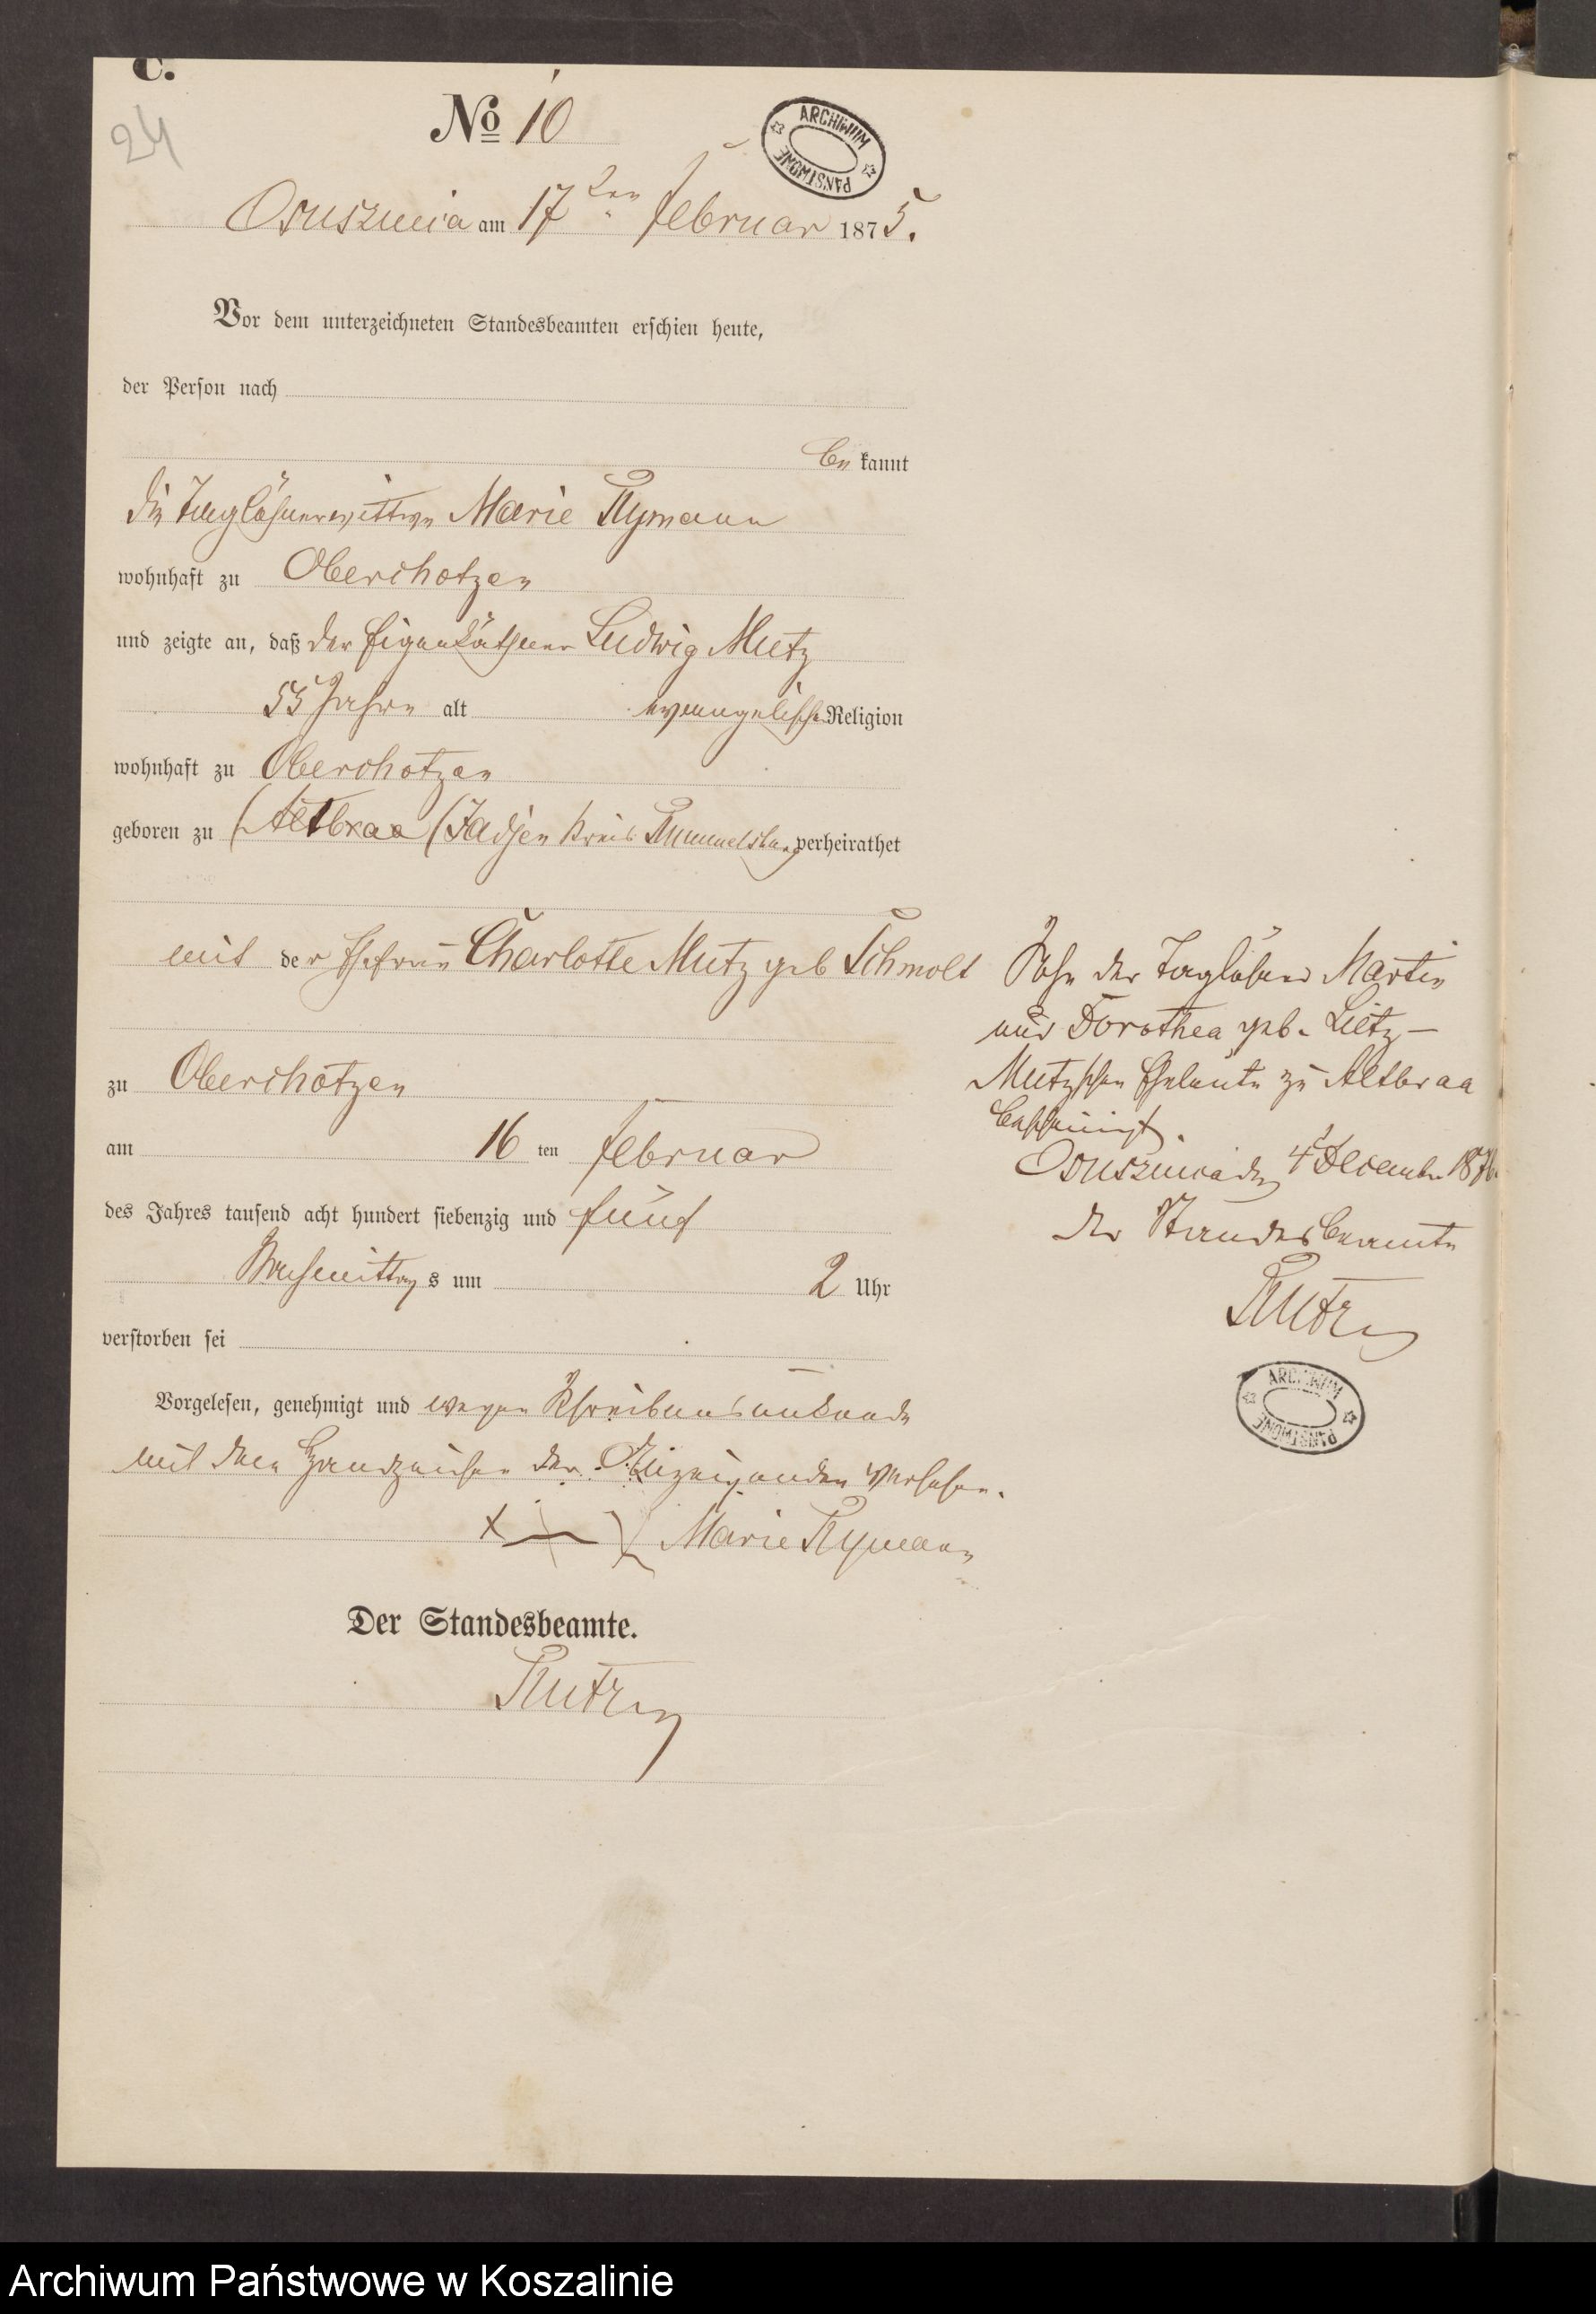 C.
24
No 10
ARCHIWUM PAŃSTWOWE
Osusznica am 17ten Februar 1875.
Vor dem unterzeichneten Standesbeamten erschien heute,
der Person nach
be kannt
die Taglöhnerwittwe Marie Rymann
wohnhaft zu Oberchotzen
und zeigte an, daß der Eigenkäthner Ludwig Mutz
55 Jahre alt evangelischer Religion
wohnhaft zu Oberchotzen
geboren zu Altbraa (Zadjen Kreis Rummelsburg verheirathet
mit der Ehefrau Charlotte Mutz geb Schmolt
zu Oberchotzen
am 16 ten Februar
des Jahres tausend acht hundert siebenzig und fünf
Nachmittags um 2 Uhr
verstorben sei
Vorgelesen, genehmigt und wegen Schreibensunkunde
mit dem Handzeichen der Anzeigenden versehen.
x Marie Rymann
Der Standesbeamte.
Sohn der Taglöhner Martin
und Dorothea geb. Lietz-
Mutzschen Eheleute zu Altbraa
bescheinigt.
Osusznica den 4t December 1876
der Standesbeamte
ARCHIWUM PAŃSTWOWE
Archiwum Państwowe w Koszalinie